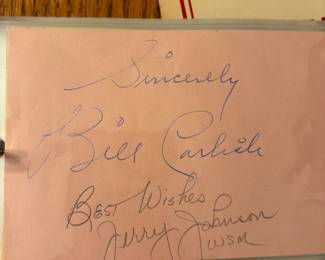 Sincerely
Bill Carlisle
Best Wishes
Jerry Johnson
WSM